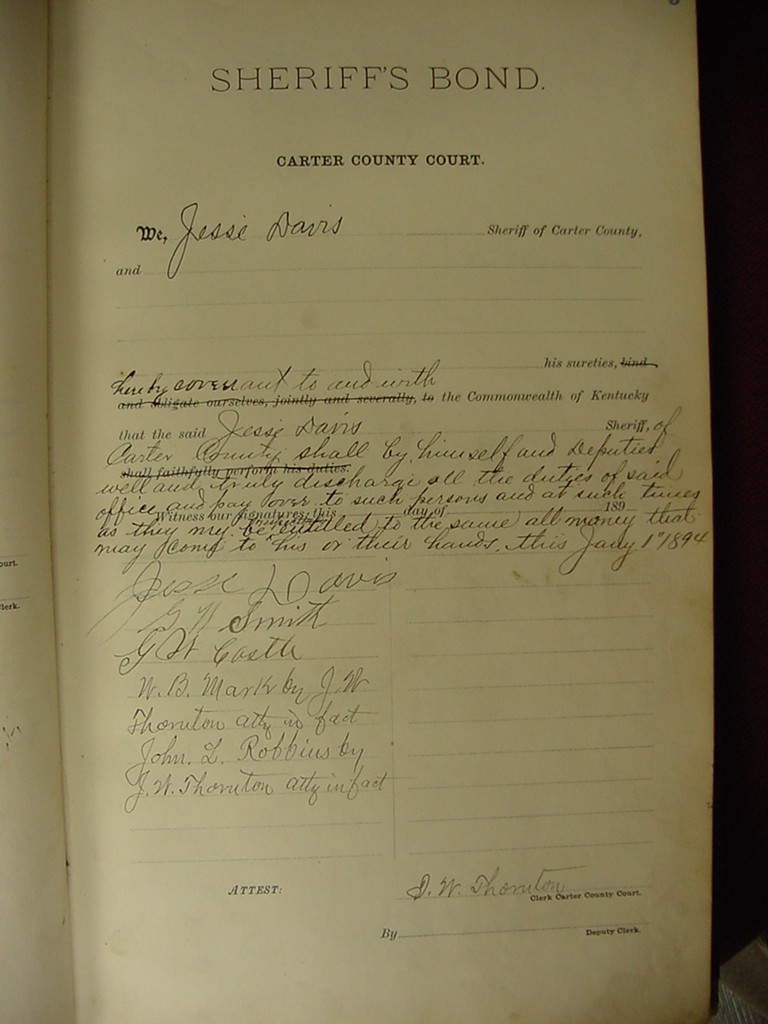 SHERIFF'S BOND.
CARTER COUNTY COURT.
We, Jesse Davis Sheriff of Carter County,
and
his sureties, bind
hereby covenant to and with
and obligate ourselves, jointly and severally, to the Commonwealth of Kentucky
that the said Jesse Davis Sheriff, of
Carter County shall by himself and Deputies
shall faithfully perform his duties.
well and truly discharge all the duties of said
office and pay over to such persons and at such times
Witness our signatures, this day of 189
as they my be entitled to the same all money that
may come to his or their hands, this Jany 1" 1894
Jesse Davis
Smith
G W Castle
W. B. Mark by J. W
Thornton atty in fact
John. L. Robbins by
J. W. Thornton atty in fact
ATTEST:
J. W. Thornton
Clerk Carter County Court.
By Deputy Clerk.
ourt.
lerk.